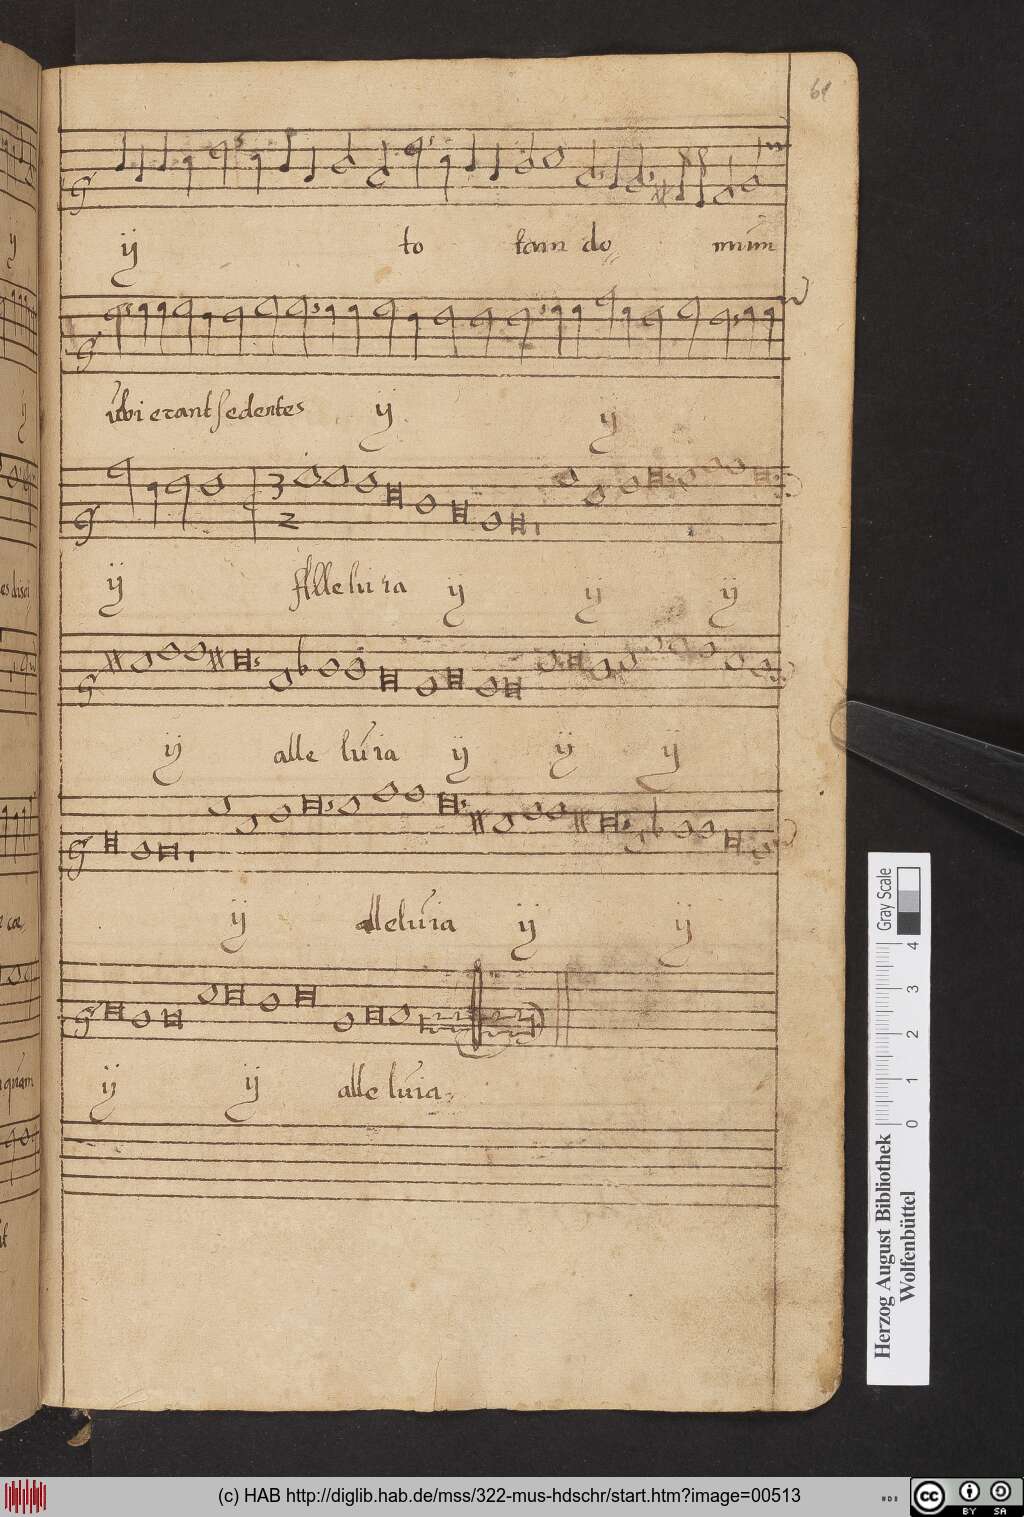 61
ij to tam do mum
ubi erant sedentes ij ij
3
2
ij Alleluia ij ij ij
ij alle luia ij ij ij
ij alleluia ij ij
ij ij alle luia
Gray Scale
0 1 2 3 4
Herzog August Bibliothek
Wolfenbüttel
(c) HAB http://diglib.hab.de/mss/322-mus-hdschr/start.htm?image=00513
cc BY SA